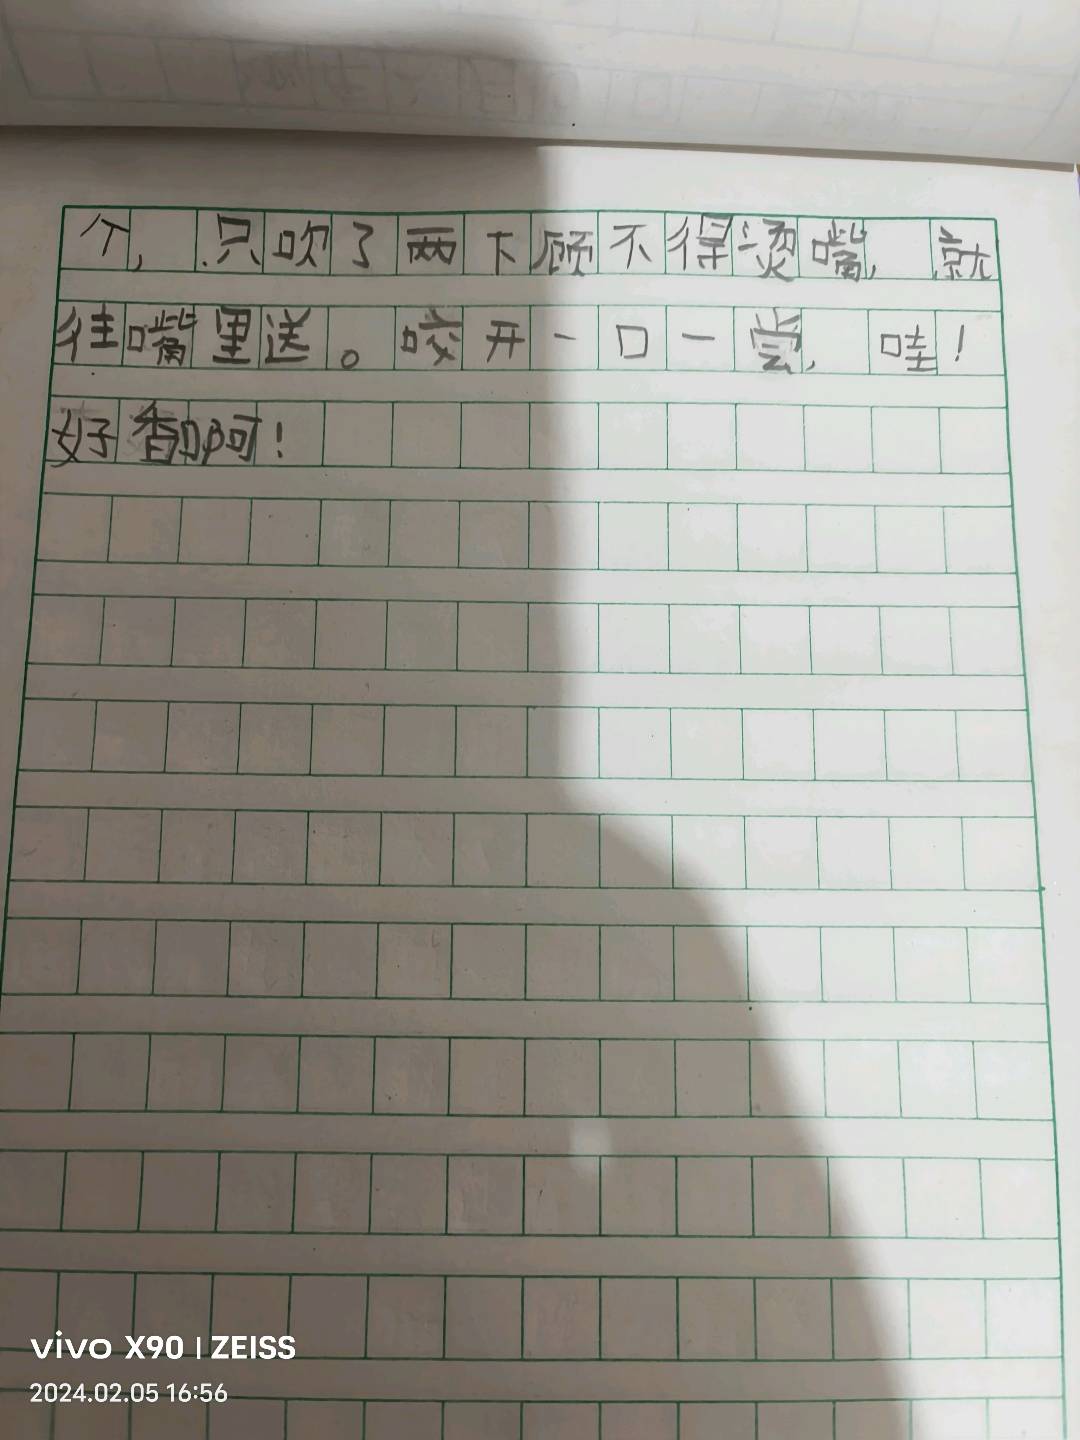 个，只吹了两下顾不得烫嘴，就
往嘴里送。咬开一口一尝，哇！
好香啊！
vivo X90 | ZEISS
2024.02.05 16:56